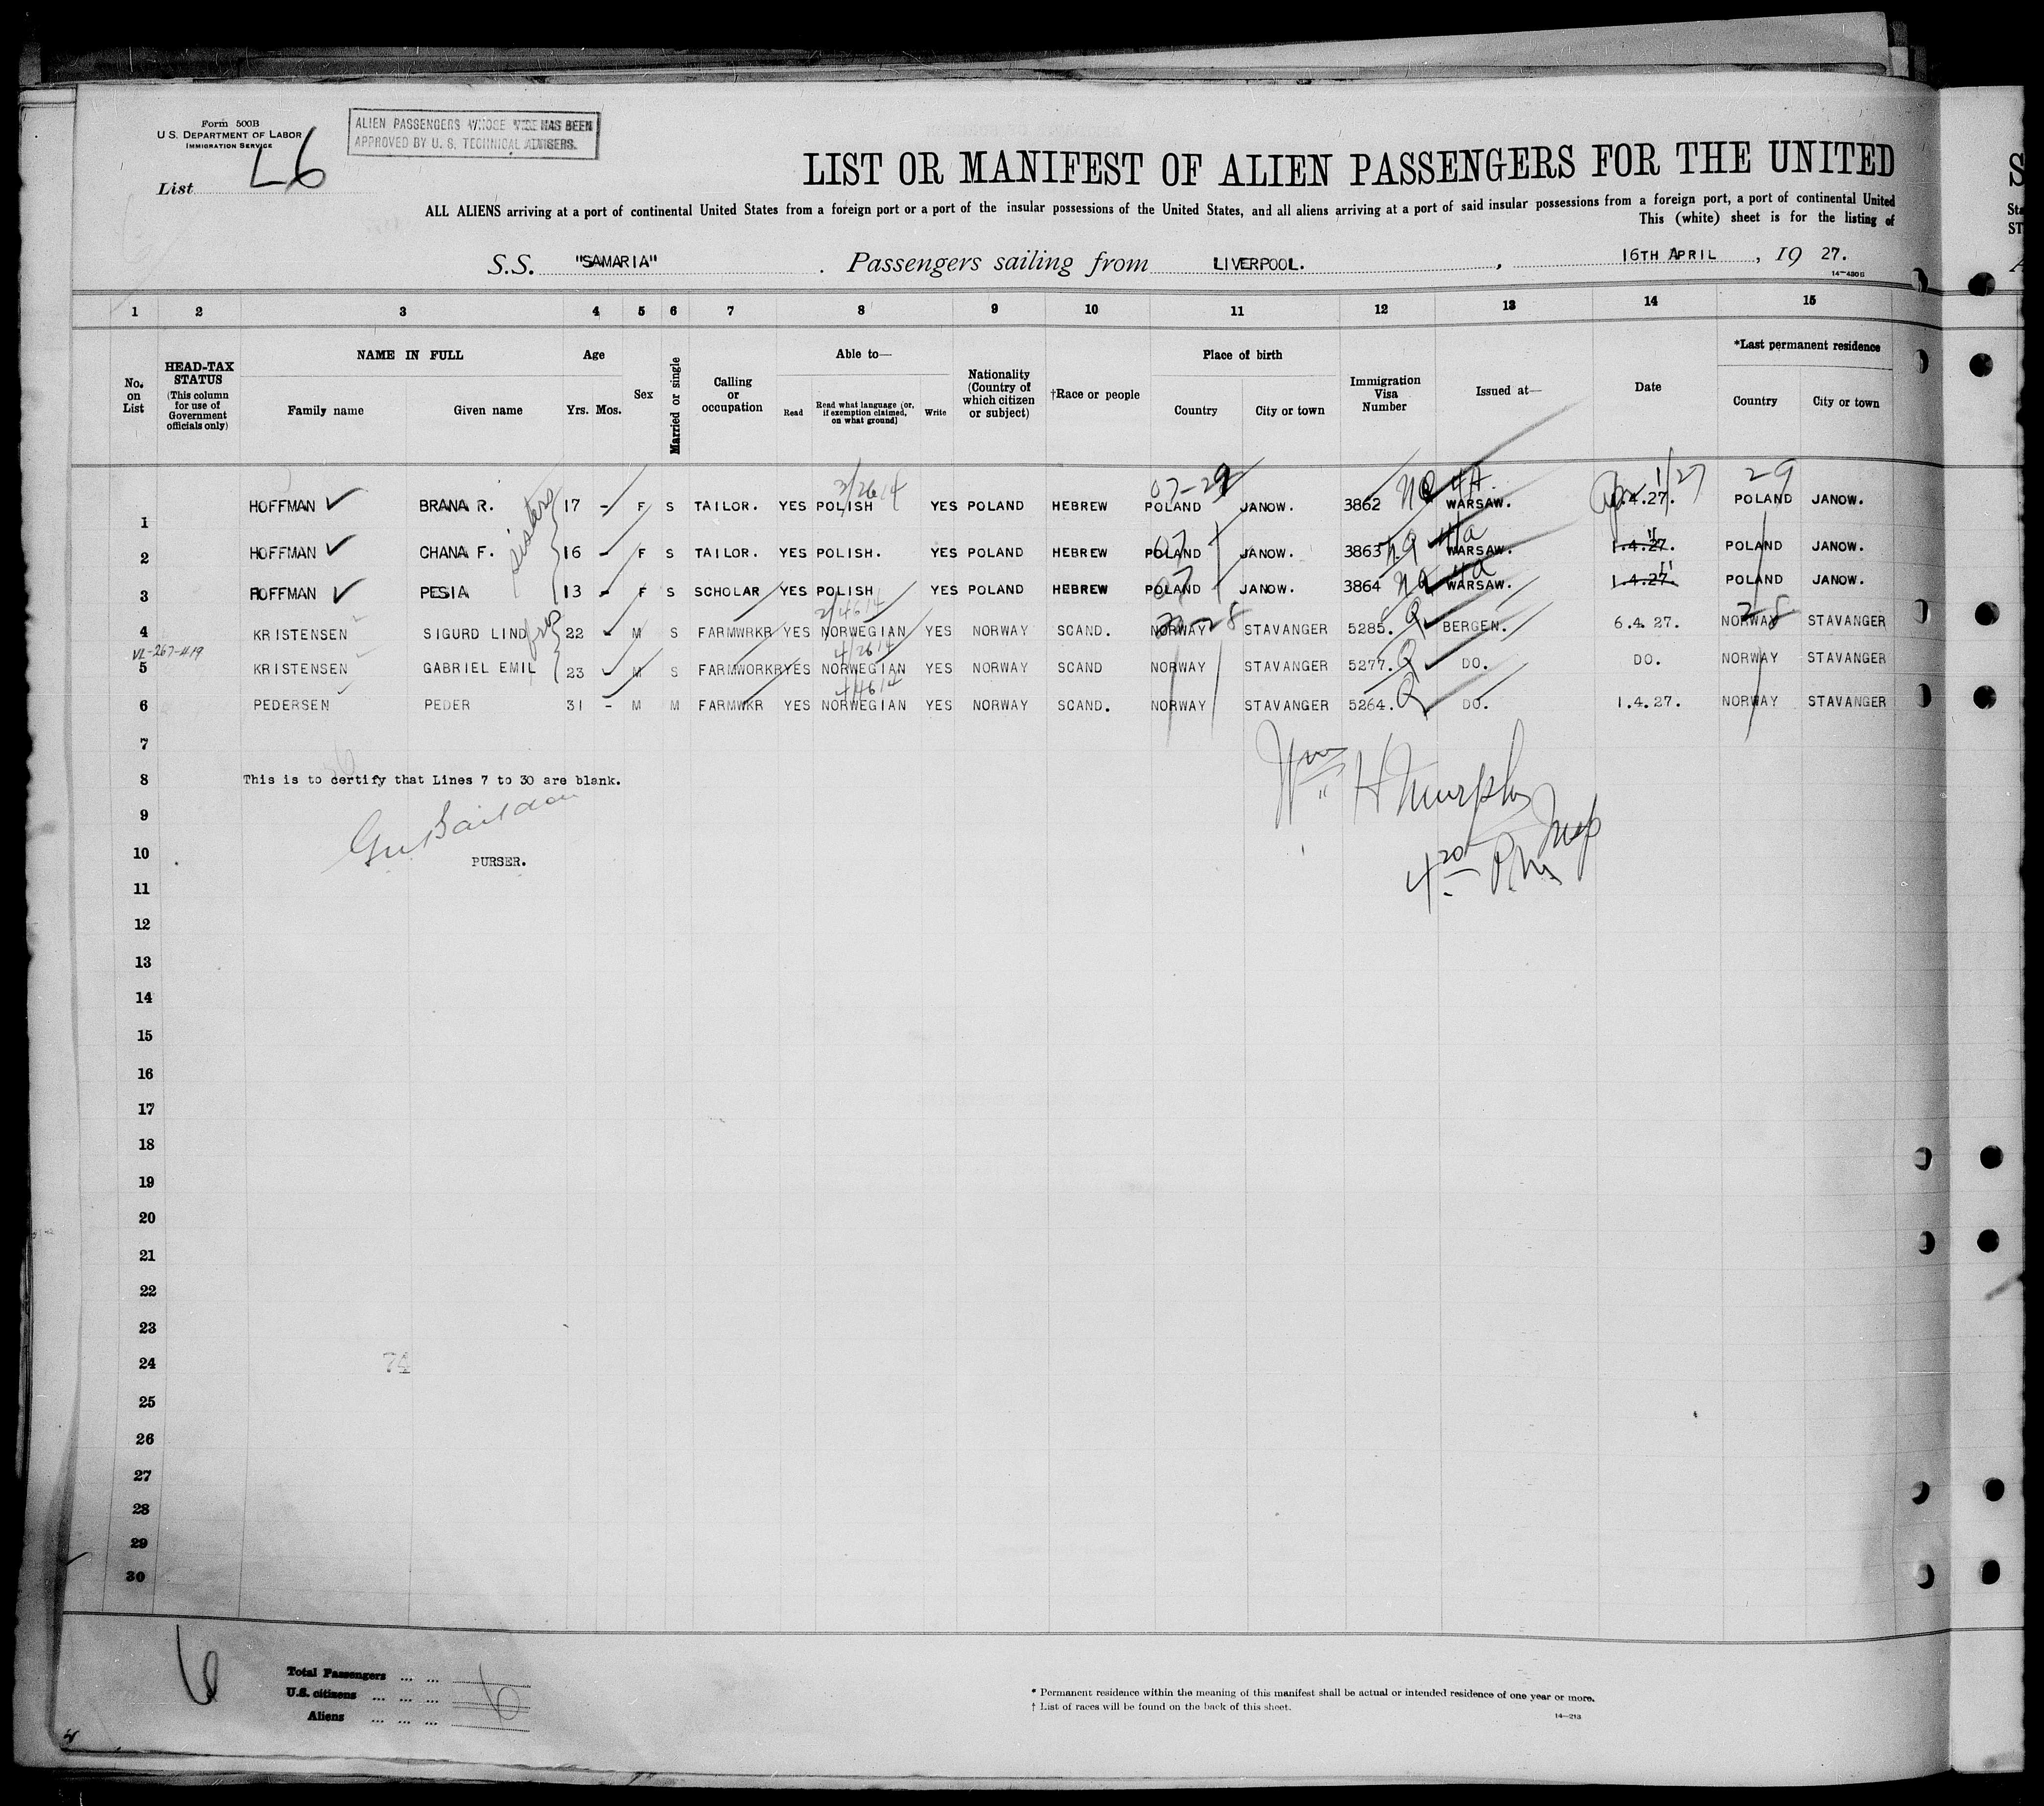 Form 500B
U. S. DEPARTMENT OF LABOR
IMMIGRATION SERVICE
List L6
ALIEN PASSENGERS WHOSE VISE HAS BEEN
APPROVED BY U. S. TECHNICAL ADVISERS.
LIST OR MANIFEST OF ALIEN PASSENGERS FOR THE UNITED
ALL ALIENS arriving at a port of continental United States from a foreign port or a port of the insular possessions of the United States, and all aliens arriving at a port of said insular possessions from a foreign port, a port of continental United
This (white) sheet is for the listing of
S.S. "SAMARIA" . Passengers sailing from LIVERPOOL. , 16TH APRIL , 19 27.
14—430B
1 2 3 4 5 6 7 8 9 10 11 12 13 14 15
No. on List
HEAD-TAX STATUS (This column for use of Government officials only)
NAME IN FULL
Family name Given name
Age
Yrs. Mos.
Sex
Married or single
Calling or occupation
Able to—
Read Read what language (or, if exemption claimed, on what ground) Write
Nationality (Country of which citizen or subject)
†Race or people
Place of birth
Country City or town
Immigration Visa Number
Issued at—
Date
*Last permanent residence
Country City or town
3/26 14 07-29 Apr 1/27 29
1 HOFFMAN BRANA R. 17 - F S TAILOR. YES POLISH YES POLAND HEBREW POLAND JANOW. 3862 NQ 4A. WARSAW. 1.4.27. POLAND JANOW.
sisters
2 HOFFMAN CHANA F. 16 - F S TAILOR. YES POLISH. YES POLAND HEBREW POLAND JANOW. 3863 NQ 4a WARSAW. 1.4.27. POLAND JANOW.
3 HOFFMAN PESIA 13 - F S SCHOLAR YES POLISH YES POLAND HEBREW POLAND JANOW. 3864 NQ 4a WARSAW. 1.4.27. POLAND JANOW.
4 KRISTENSEN SIGURD LIND 22 - M S FARMWRKR YES NORWEGIAN YES NORWAY SCAND. NORWAY STAVANGER 5285. Q BERGEN. 6.4. 27. NORWAY STAVANGER
5 KRISTENSEN GABRIEL EMIL 23 - M S FARMWORKR YES NORWEGIAN YES NORWAY SCAND NORWAY STAVANGER 5277. Q DO. DO. NORWAY STAVANGER
6 PEDERSEN PEDER 31 - M M FARMWKR YES NORWEGIAN YES NORWAY SCAND. NORWAY STAVANGER 5264. Q DO. 1.4.27. NORWAY STAVANGER
7
8 This is to certify that Lines 7 to 30 are blank.
Wm H Murphy
9
Insp
10 PURSER.
11
12
13
14
15
16
17
18
19
20
21
22
23
24
74
25
26
27
28
29
30
6
Total Passengers ... ...
U.S. citizens ... ... ... 6
Aliens ... ... ...
* Permanent residence within the meaning of this manifest shall be actual or intended residence of one year or more.
† List of races will be found on the back of this sheet.
14—213